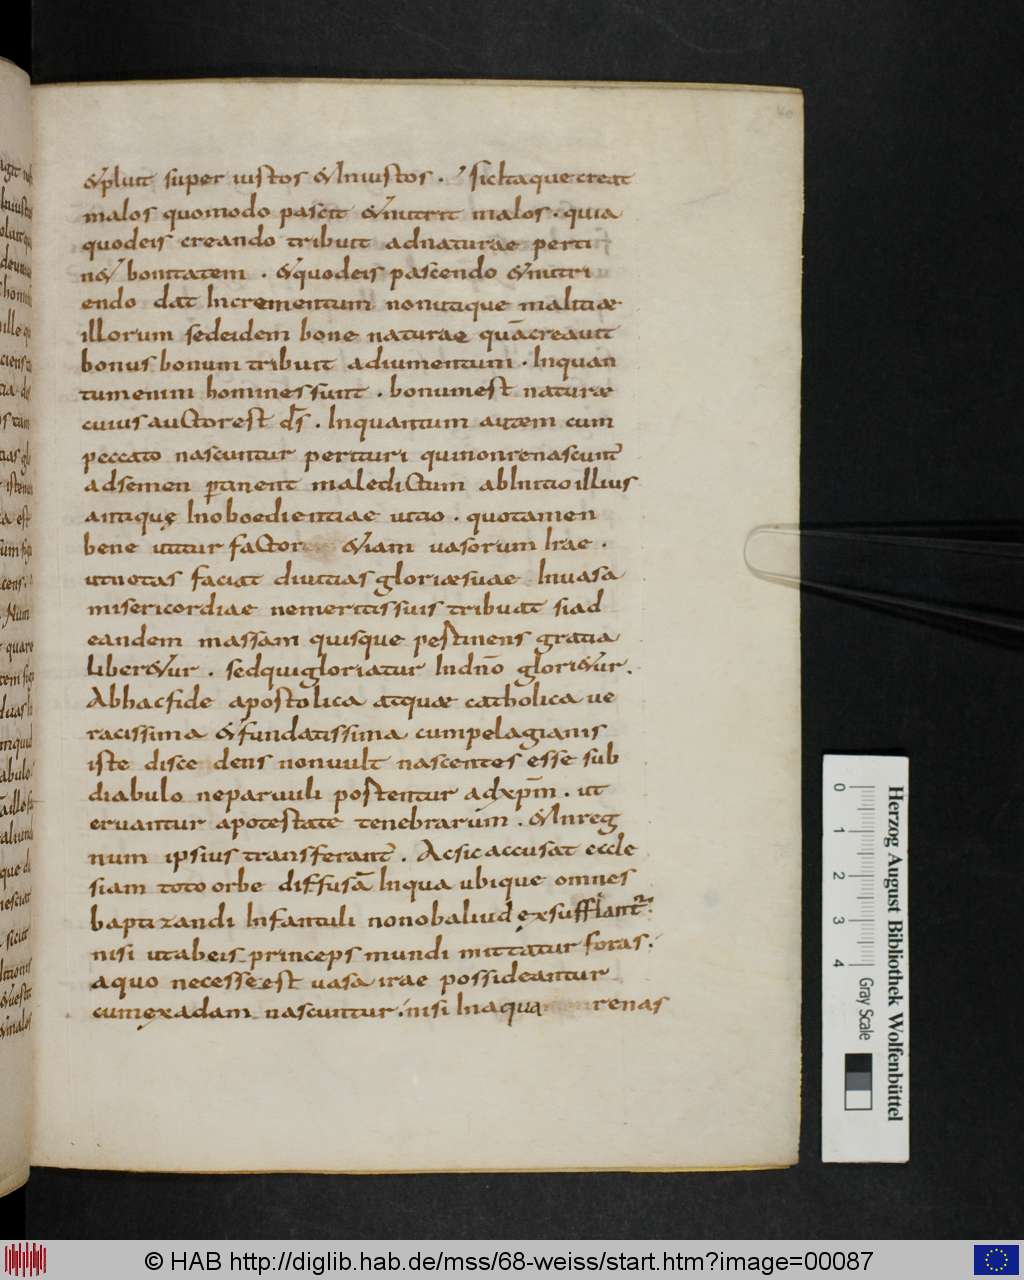 &pluit super iustos &Iniustos. Sic itaque creat
malos quomodo pascit &nutrit malos. quia
quodeis creando tribuit adnaturae perti
n& bonitatem. &quodeis pascendo &nutri
endo dat Incrementum nonutique malitiæ
illorum sedeidem bone naturae quācreauit
bonus bonum tribuit adiumentum. Inquan
tumenim homines sunt. bonumest naturæ
cuius auctor est d̄s. Inquantum autem cum
peccato nascuntur perituri quinonrenascunt̄
adsemen ꝑtinent maledictum abInitio illius
antiquę Inoboedientiae uitio. quotamen
bene utitur factor &iam uasorum Irae.
utnotas faciat diuitias gloriæsuae Inuasa
misericordiae nemeritissuis tribuat siad
eandem massam quisque pertinens gratia
liber&ur. sedquigloriatur Indn̄o glori&ur.
Abhacfide apostolica atquæ catholica ue
racissima &fundatissima cumpelagianis
iste disce dens nonuult nascentes esse sub
diabulo neparuuli portentur adxp̄m. ut
eruantur apotestate tenebrarum. &Inreg
num ipsius transferant̄. Acsic accusat eccle
siam toto orbe diffusā Inqua ubique omnes
baptizandi Infantuli nonobaliud exsufflant̄.
nisi utabeis princeps mundi mittatur foras.
aquo necesseest uasa irae possideantur
cumęxadam nascuntur. nisi Inaqua renas
0 1 2 3 4
Gray Scale
Herzog August Bibliothek Wolfenbüttel
© HAB http://diglib.hab.de/mss/68-weiss/start.htm?image=00087